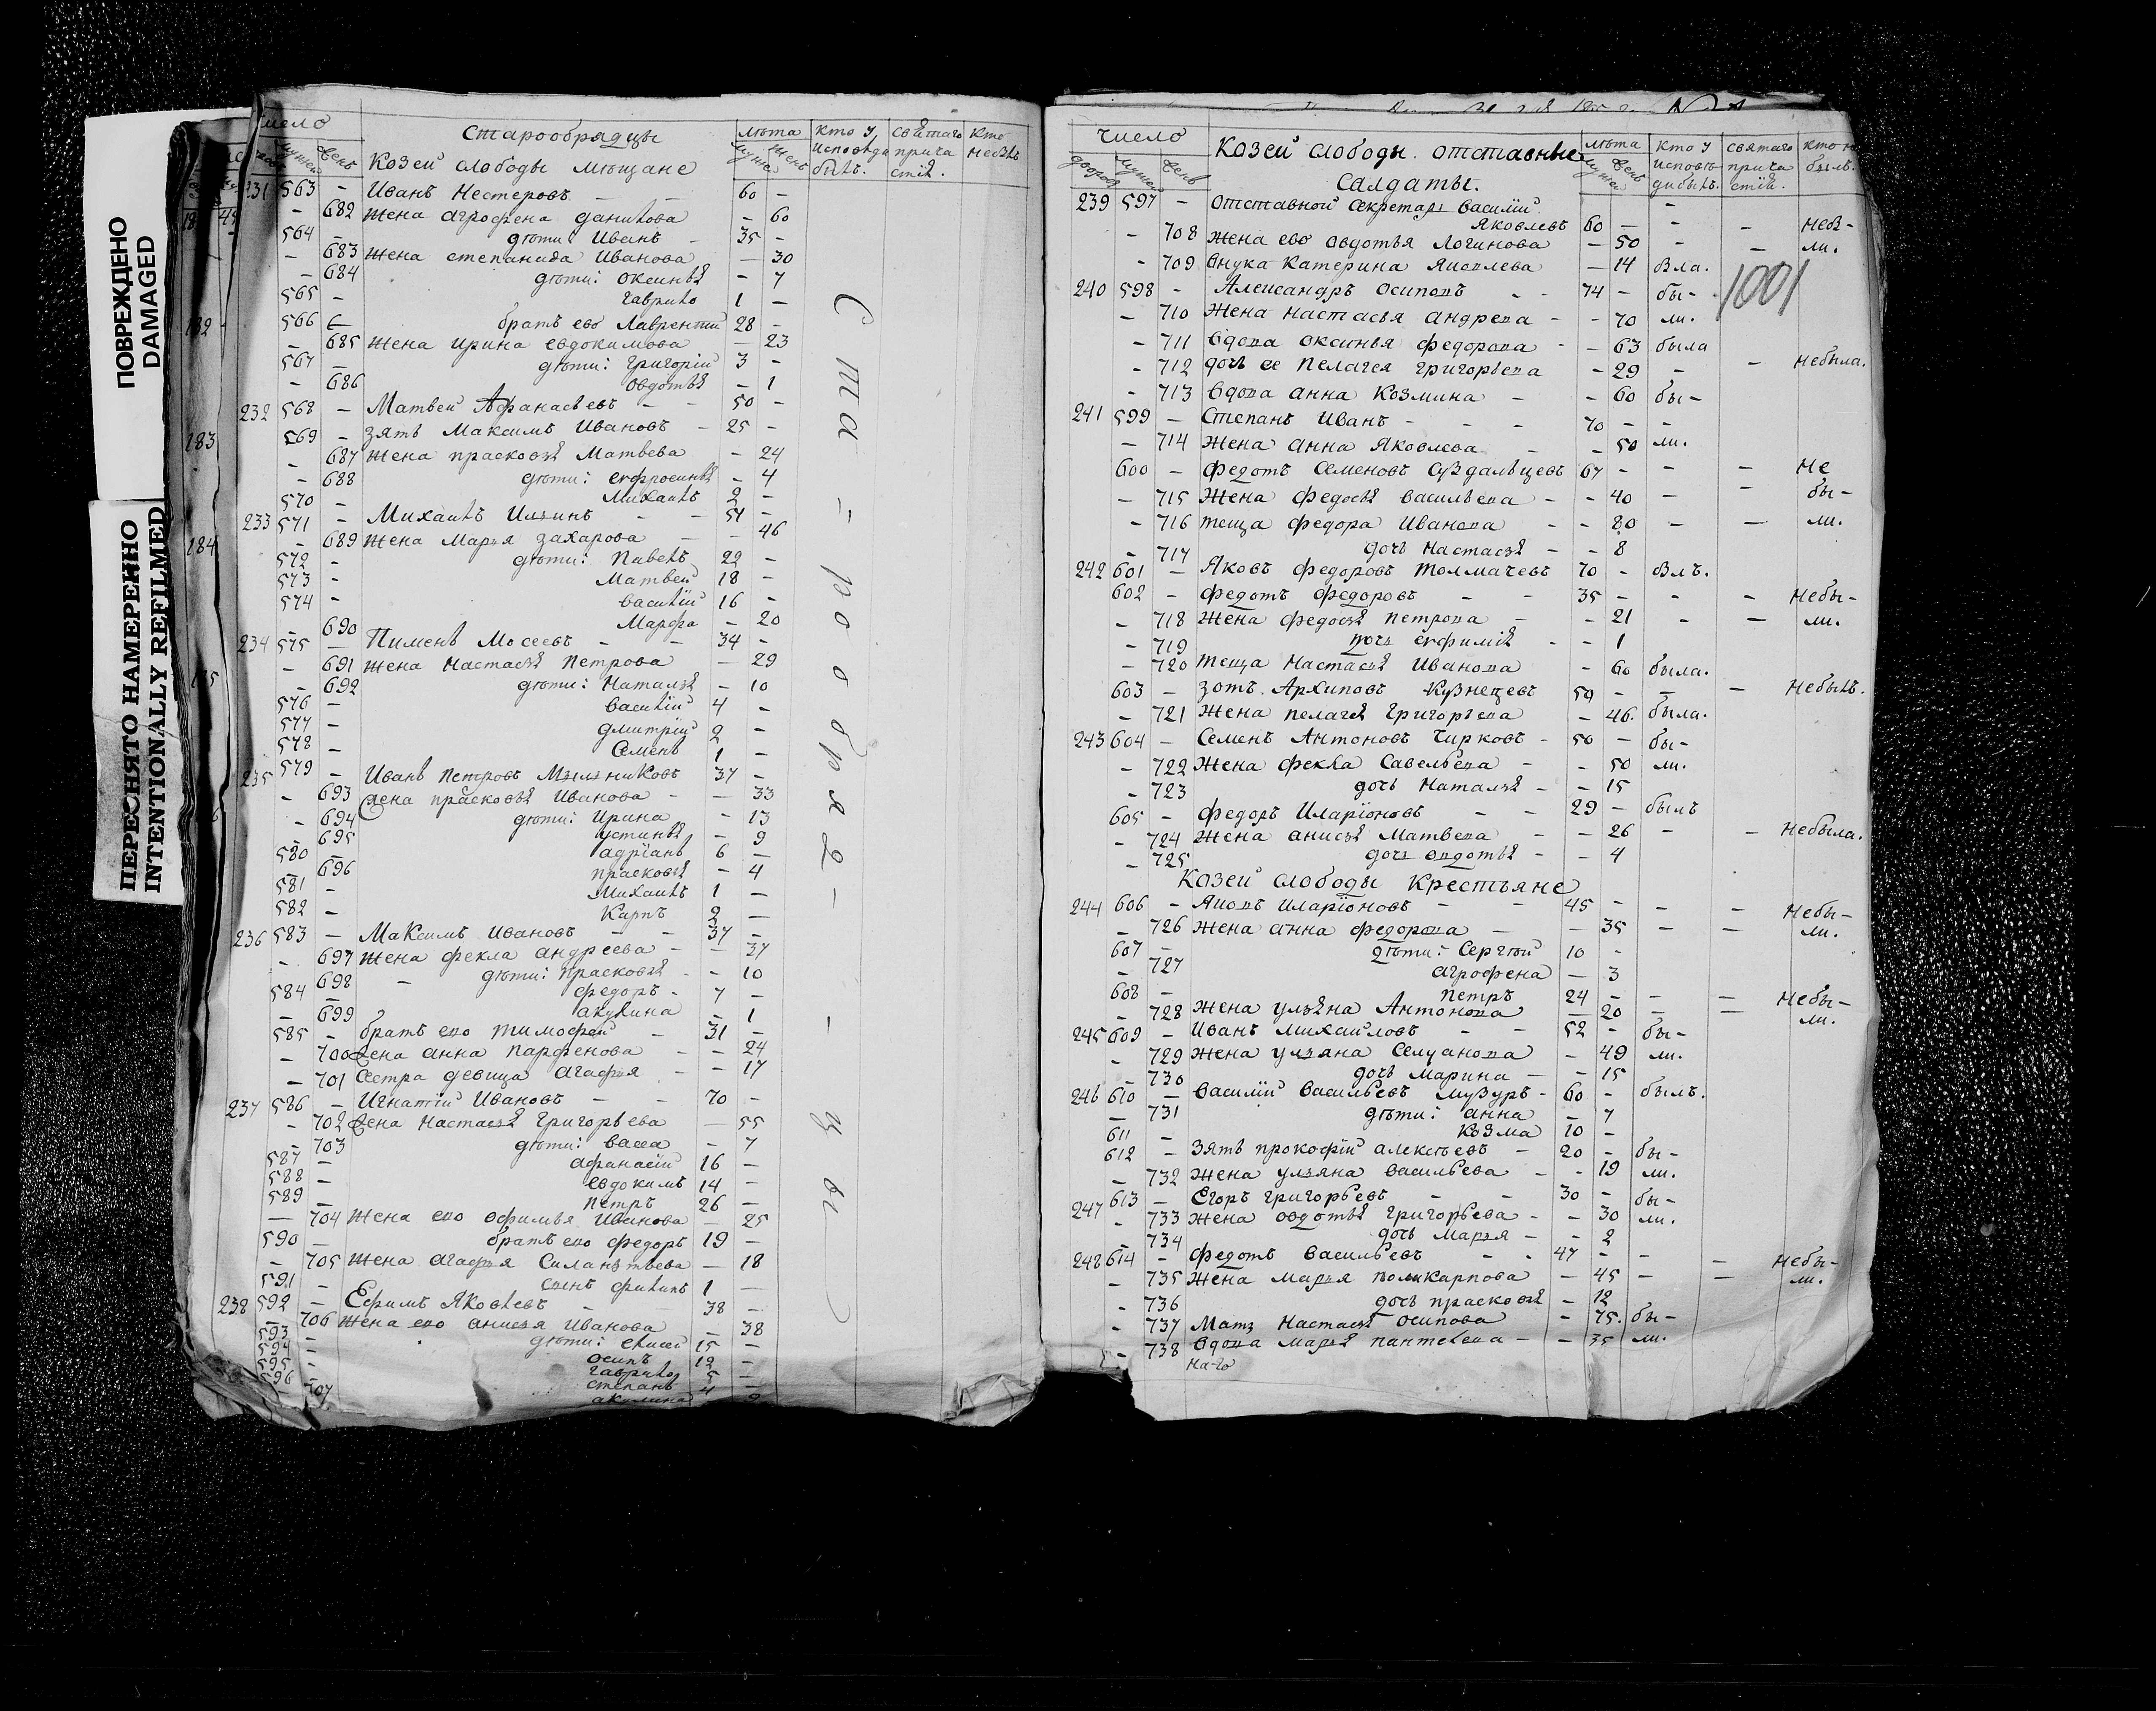 ПОВРЕЖДЕНО
DAMAGED
ПЕРЕСНЯТО НАМЕРЕННО
INTENTIONALLY REFILMED
число
Старообрядцы
Козей слободы мѣщане
лѣта
кто у
исповѣди
былъ.
святаго
прича
стія.
кто
231 563 – Иванъ Нестеровъ – – 60 –
– 682 жена агрофена данилова – 60
564 – дѣти: Иванъ – 35 –
– 683 жена степанида Иванова – 30
– 684 дѣти: оксинья – 7
565 – гаврило 1 –
566 – братъ его Лаврентій 28 –
– 685 жена ирина евдокимова – 23
567 – дѣти: григорій 3 –
– 686 овдотья – 1
232 568 – Матвей Афанасьевъ – – 50 –
569 – зять Максимъ Ивановъ – 25 –
– 687 жена прасковья Матвева – 24
– 688 дѣти: ефросинья – 4
570 – Михаилъ 2 –
233 571 – Михаилъ Ильинъ – – 51 –
– 689 жена Марья захарова – – 46
572 – дѣти: Павелъ 22 –
573 – Матвей 18 –
574 – василій 16 –
– 690 Марфа – 20
234 575 – Пименъ Мосеевъ – – 34 –
– 691 жена Настасья Петрова – 29
– 692 дѣти: Наталья – 10
576 – василій 4 –
577 – дмитрій 2 –
578 – Семенъ 1 –
235 579 – Иванъ Петровъ Мыльниковъ 37 –
– 693 жена прасковья Иванова – – 33
– 694 дѣти: Ирина – 13
– 695 устинья – 9
580 – адріанъ 6 –
– 696 прасковья – 4
581 – Михаилъ 1 –
582 – Карпъ 2 –
236 583 – Максимъ Ивановъ – – 37 –
– 697 жена фекла андреева – – 37
– 698 – дѣти: прасковья – – 10
584 – федоръ – 7 –
– 699 акулина – 1
585 – братъ ево тимофей – 31 –
– 700 жена анна парфенова – – 24
– 701 сестра девица агафья – – 17
237 586 – Игнатій Ивановъ – – 70 –
– 702 жена Настасья Григорьева – 55
– 703 дѣти: васса – 7
587 – афанасій 16 –
588 – евдокимъ 14 –
589 – петръ 26 –
– 704 жена ево офимья Иванова – 25
590 – братъ ево федоръ 19 –
– 705 жена агафья Силантьева – 18
591 – сынъ филипъ 1 –
238 592 – Ефимъ Яковлевъ – 38 –
– 706 жена ево анисья Иванова – 38
593 – дѣти: елисей 15 –
594 – осипъ 12 –
595 – гаврило 5 –
596 – степанъ 4 –
707 акулина
Старообрядцы
число
дворов
мужск
женск
Козей слободы отставные
салдаты.
лѣта
кто у
исповѣ
ди былъ.
святаго
прича
стія.
кто не
былъ.
1001
239 597 – отставной секретарь василій
Яковлевъ 60 – – – небы-
– 708 жена ево овдотья логинова – 50 – – ли.
– 709 внука Катерина Яковлева – 14 была.
240 598 – Александръ осиповъ – – 74 – бы-
– 710 жена настасья андрева – – 70 ли.
– 711 вдова оксинья федорова – – 63 была
– 712 дочь ее пелагея григорьева – 29 – – небыла.
– 713 вдова анна Козмина – – 60 бы-
241 599 – Степанъ Иванъ – – – 70 – –
– 714 жена анна Яковлева – – 50 ли.
600 – федотъ семеновъ суздальцевъ 67 – – – не
– 715 жена федосья васильева – – 40 – – бы-
– 716 теща федора Иванова – – 80 – – ли.
– 717 дочь Настасья – – 8
242 601 – Яковъ федоровъ толмачевъ 70 – былъ.
602 – федотъ федоровъ – – 35 – – – небы-
– 718 жена федосья петрова – – 21 – – ли.
– 719 дочь ефимія – – 1
– 720 теща Настасья Иванова – 60 была.
603 – зотъ Архиповъ Кузнецевъ 59 – – – небылъ.
– 721 жена пелагея григорьева – 46. была.
243 604 – Семенъ Антоновъ Чирковъ – 50 – бы-
– 722 жена фекла Савельева – – 50 ли.
– 723 дочь Наталья – – 15
605 – федоръ Иларіоновъ – – 29 – былъ
– 724 жена анисья Матвева – – 26 – – небыла.
– 725 дочь овдотья – – 4
Козей слободы Крестьяне
244 606 – Яковъ иларіоновъ – – 45 – – – небы-
– 726 жена анна федорова – – 35 – – ли.
607 – дѣти: Сергѣй 10 –
– 727 агрофена – 3
608 – петръ 24 – – – небы-
– 728 жена ульяна Антонова – 20 – ли.
245 609 – Иванъ Михайловъ – – 52 – бы-
– 729 жена ульяна Селуанова – 49 ли.
– 730 дочь Марина – – 15
246 610 – василій васильевъ музуръ – 60 – былъ.
– 731 дѣти: анна – 7
611 – козма 10 –
612 – зять прокофій алексѣевъ – 20 – бы-
– 732 жена ульяна васильева – – 19 ли.
247 613 – Егоръ григорьевъ – – 30 – бы-
– 733 жена овдотья григорьева – – 30 ли.
– 734 дочь Марья – – 2
248 614 – федотъ васильевъ – – 47 – – – небы-
– 735 жена марья поликарпова – 45 – – ли.
– 736 дочь прасковья – 12
– 737 Мать Настасья осипова – 75. бы-
– 738 вдова марья пантелева – – 35 ли.